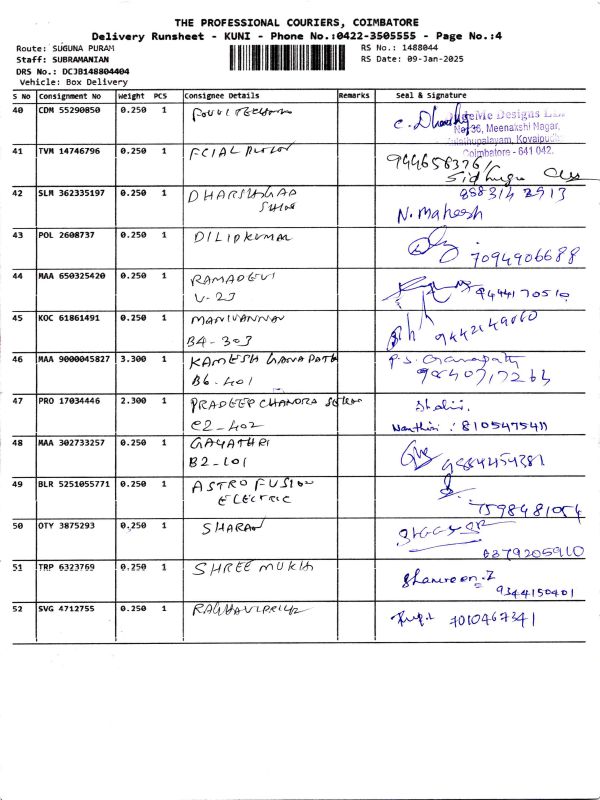 THE PROFESSIONAL COURIERS, COIMBATORE
Delivery Runsheet - KUNI - Phone No.:0422-3505555 - Page No.:4
Route: SUGUNA PURAM
RS No.: 1488044
Staff: SUBRAMANIAN
RS Date: 09-Jan-2025
DRS No.: DCJB148804404
Vehicle: Box Delivery
S No Consignment No Weight PCS Consignee Details Remarks Seal & Signature
40 CDM 55290850 0.250 1
Me Designs
36, Meenakshi Nagar,
Coimbatore - 641 042.
41 TVM 14746796 0.250 1
9444658376/
42 SLM 362335197 0.250 1
N. Mahesh
43 POL 2608737 0.250 1 DILIPKUMAR 7094906688
44 MAA 650325420 0.250 1 RAMADEVI
V-23 9444170510
45 KOC 61861491 0.250 1 MANIVANNAN
B4-303
46 MAA 9000045827 3.300 1 KAMESH GANAPATH P.S. Ganapathy
B6-401
47 PRO 17034446 2.300 1 PRADEEP CHANDRA Shalini
C2-402 8105475411
48 MAA 302733257 0.250 1 GAYATHRI
B2-101 9884454381
49 BLR 5251055771 0.250 1 ASTRO FUSION
ELECTRIC
7598481054
50 OTY 3875293 0.250 1 SHARAN
6379205910
51 TRP 6323769 0.250 1 SHREE MUKH
9344150401
52 SVG 4712755 0.250 1 RAGHAVIPRIYA 7010467341